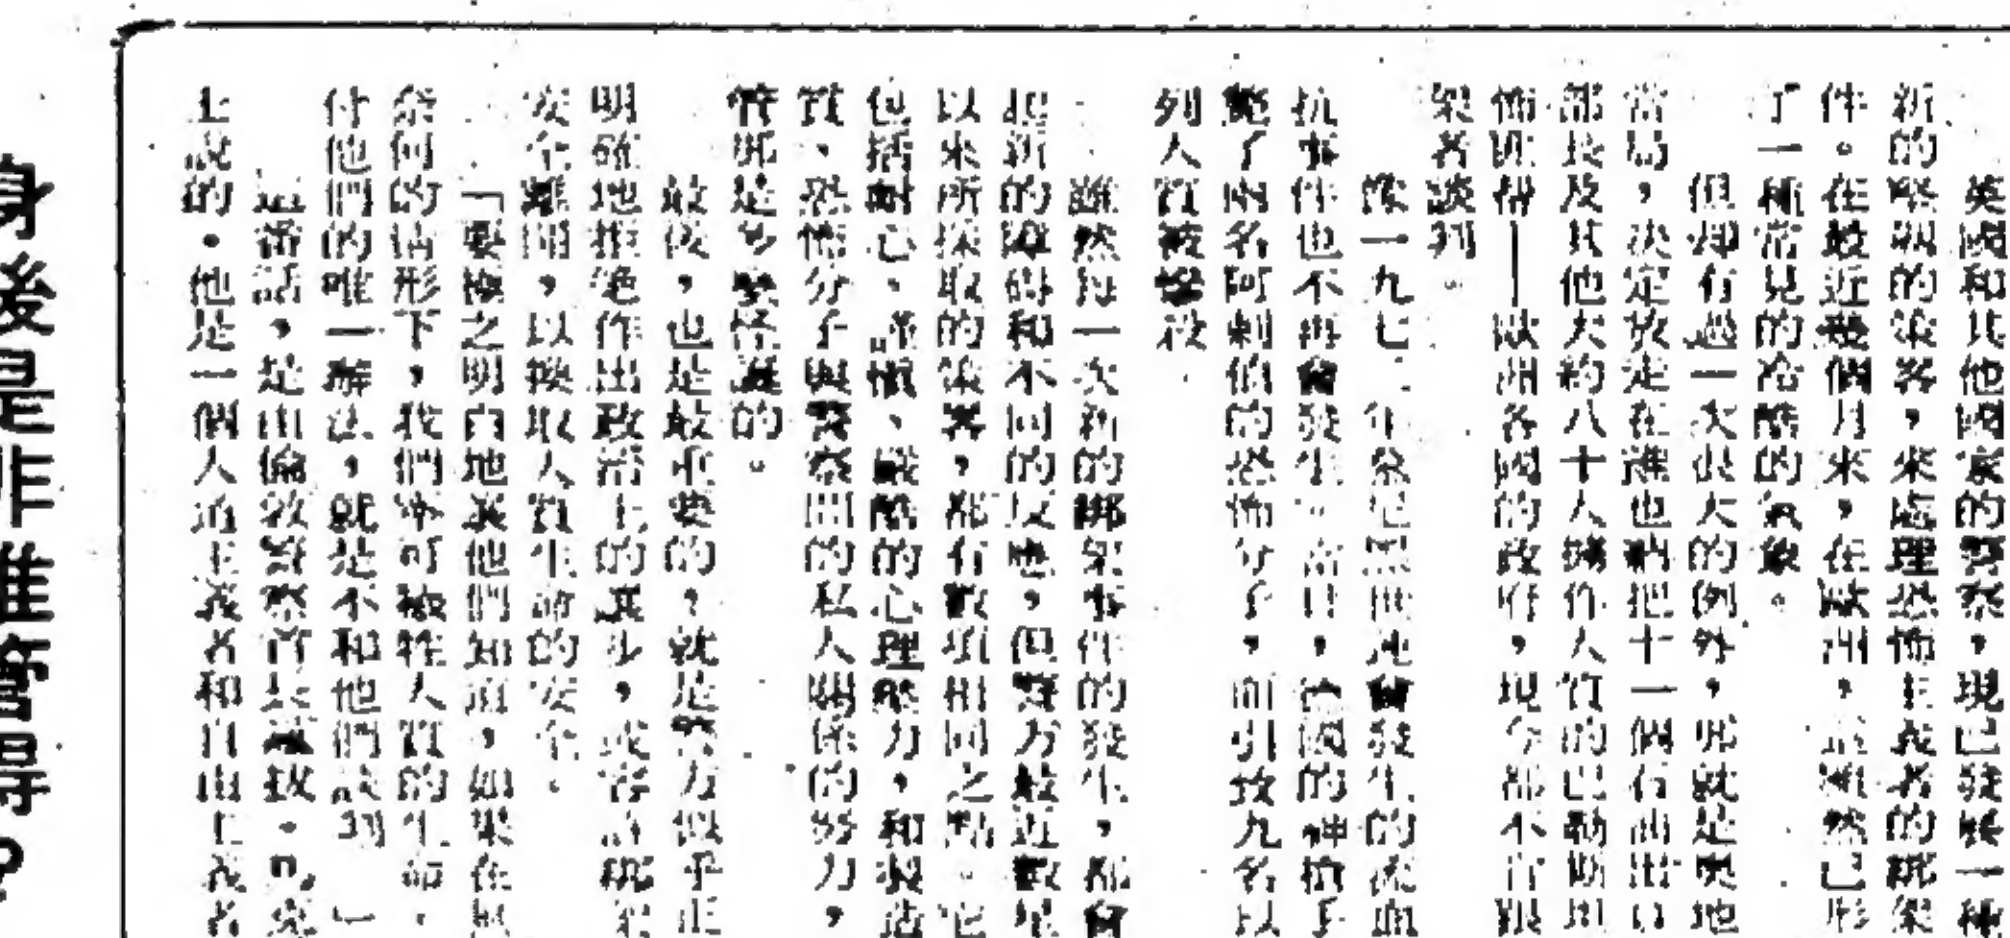 英國和其他國家的警察，現已發展一種
新的堅韌的策畧，來處理恐怖主義者的綁架
件。在最近幾個月來，在歐洲，這顯然已形
了一種常見的冷酷的氣象。
但却有過一次很大的例外，那就是奧地
當局，決定放走在誰也稱把十一個石油出口
部長及其他大約八十人擄作人質的巴勒斯坦
怖班幫——歐洲各國的政府，現今都不肯跟
架者談判。
像一九七二年奧運黑世運會發生的流血
抗事件也不再會發生。當日，德國的神槍手
斃了兩名阿剌伯的恐怖分子，而引致九名以
列人質被慘殺
雖然每一次新的綁架事件的發生，都會
起新的障碍和不同的反應，但警方最近數星
以來所採取的策畧，都有數項相同之點。它
包括耐心、謹慎、嚴酷的心理壓力，和製造
質、恐怖分子與警察間的私人關係的努力，
管那是多麼怪誕的。
最後，也是最重要的，就是警方似乎正
明確地拒絕作出政治上的讓步，或容許綁架
安全離開，以換取人質生命的安全。
「要極之明白地讓他們知道，如果在無
奈何的情形下，我們寧可犧牲人質的生命，
付他們的唯一辦法，就是不和他們談判」
這番話，是由倫敦警察首長羅拔·
士說的。他是一個人道主義者和自由主義者
身後是非誰管得？